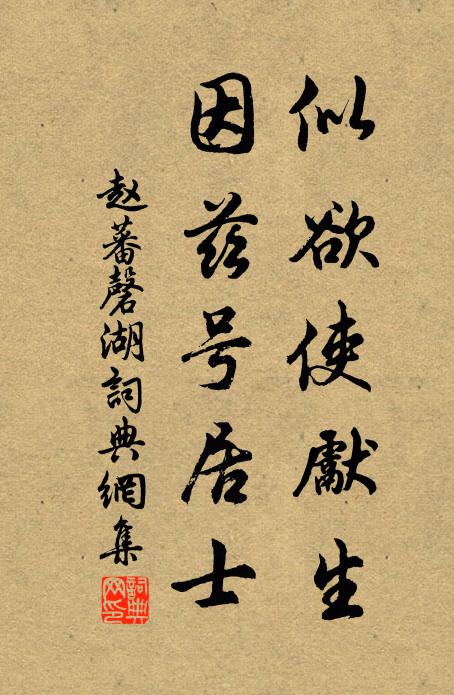 似欲使獻生
因茲号居士
赵蕃磬湖詞典網集
詞典网印